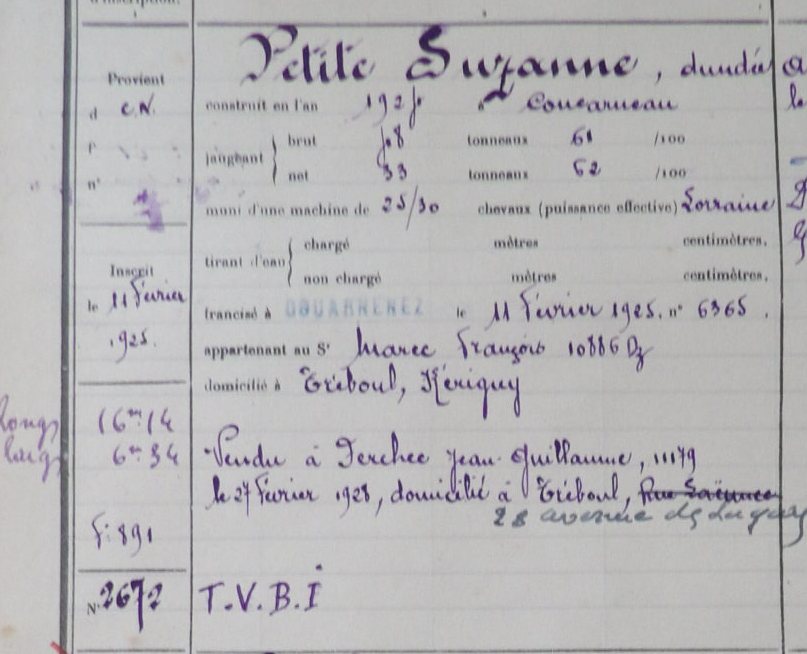 d'inscription.
Petite Suzanne, dundée
Provient
d C.N. construit en l'an 1925 à Concarneau
f°
n°
jaugeant brut 58 tonneaux 61 /100
net 33 tonneaux 62 /100
muni d'une machine de 25/30 chevaux (puissance effective) Lorraine
tirant d'eau chargé mètres centimètres.
non chargé mètres centimètres.
Inscrit
le 11 Février
1925.
francisé à DOUARNENEZ le 11 Février 1925. n° 6365.
appartenant au Sr Marec François 10886 Dz
domicilié à Tréboul, Kériguy
long 16m 14
larg 6m 34
Vendu à Ferchec Jean Guillaume, 11179
le 27 Février 1928, domicilié à Tréboul, Rue
28 avenue de
F: 891
N° 2672 T.V.B.I